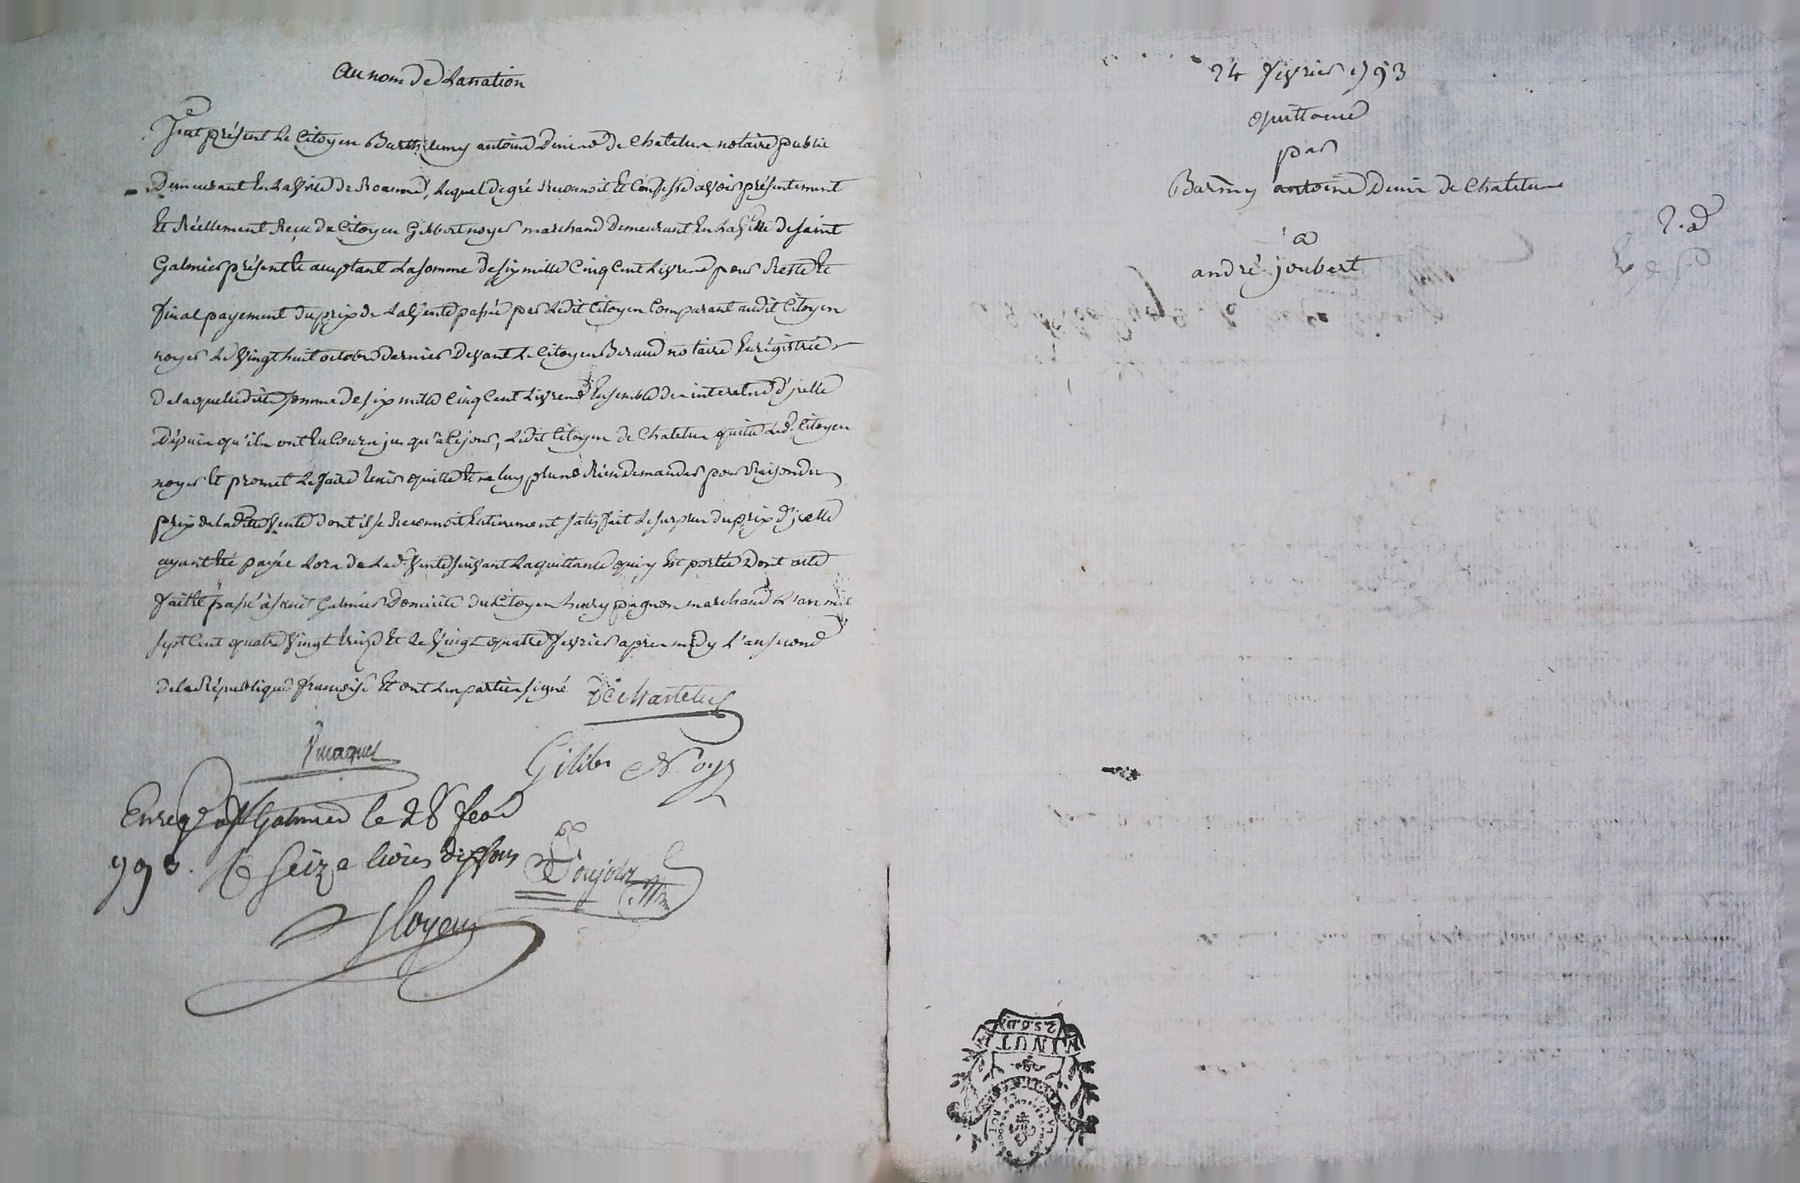 Au nom de La nation
fut présent Le Citoyen Barthelemy antoine Denis de Chatelus notaire public
Demeurant En La Ville de Roanne, Lequel de gré Reconnoit Et Confesse avoir présentement
Et Réellement Reçu du Citoyen Gilbert noyer marchand demeurant En La Ville de saint
Galmier présent Et acceptant La somme de six mille Cinq Cent Livres pour Reste Et
final payement du prix de La Vente passée par Ledit Citoyen Comparant audit Citoyen
noyer Le Vingt huit octobre dernier devant Le Citoyen Beraud notaire Enrégistrée
de laquelle ditte somme de six mille Cinq Cent Livres Ensemble des interets d'jcelle
Dépuis qu'ils ont Eu Cours jusqu'à Ce jour, Ledit Citoyen de Chatelus quitte Led. Citoyen
noyer Et promet Le faire tenir quitte Et ne luy plus Rien demander pour Raison du
prix de la ditte Vente dont il se Reconnoit Entierement satisfait Le surplus du prix d'jcelle
ayant Eté payée Lors de Lad. Vente suivant La quittance qui y Est portée Dont acte
fait Et passé à saint Galmier Domicile du Citoyen henry pagnon marchand L'an mil
sept Cent quatre Vingt treize Et Le Vingt quatre fevrier apres midy L'an second
de la République françoise Et ont Les parties signé DeChatelus
Gilber Noyer
Enreg à St Galmier le 28 feb
1793. R seize livres dix sous
24 fevrier 1793
quittance
par
Barmy antoine Denis de Chatelus
a
andré joubert
2. d
MINUT